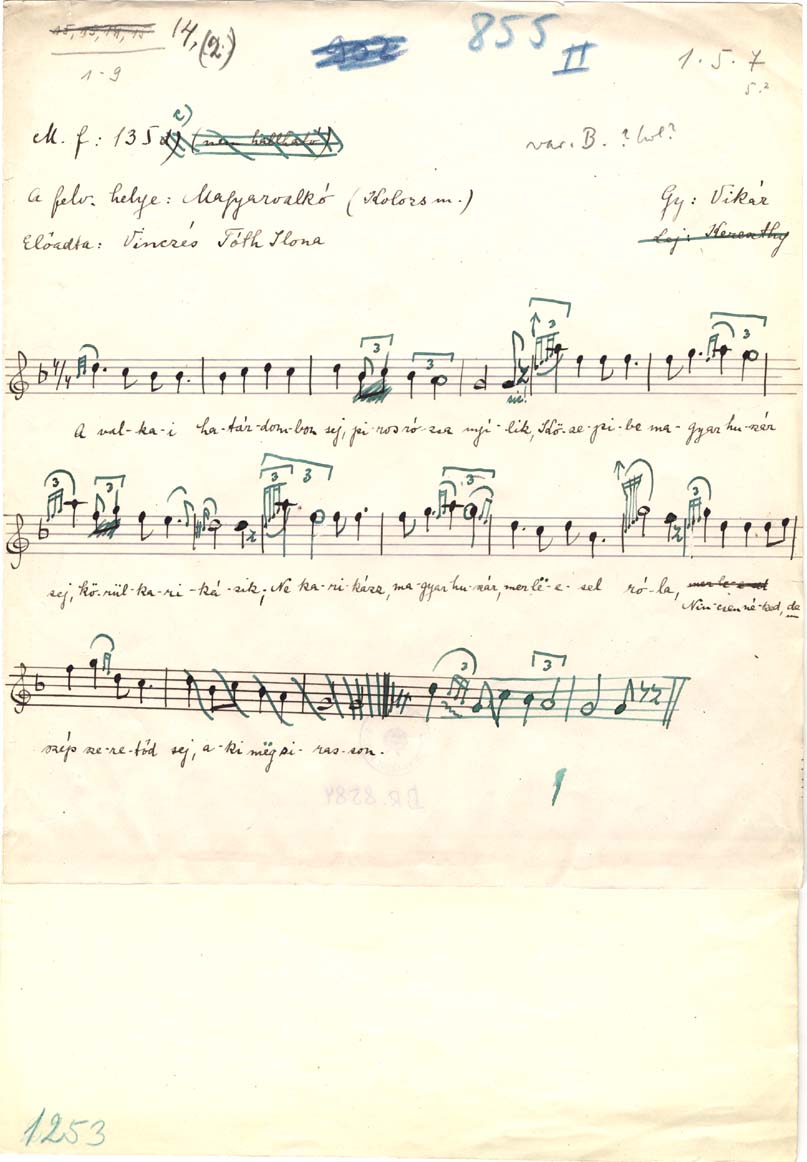 15, 15, 14, 15 14, (2.)
1-9
855
II
1 . 5 . 7
5.2
M. f: 135 c) (nem hallható)
var. B. ? hol?
A felv. helye: Magyarvalkó (Kolozs m.)
Gy: Vikár
Előadta: Vinczés Tóth Ilona
Lej: Kereszthy
4/4
A val-ka-i ha-tár-dom-bon sej, pi-ros ró-zsa nyi-lik, Kö-ze-pi-be ma-gyar hu-szár
sej, kö-rül-ka-ri-ká-zik; Ne ka-ri-kázz, ma-gyar hu-szár, mer lë-e-sel ró-la,
Nin-csen né-ked, de
szép sze-re-tőd sej, a-ki mëg si-ras-son.
1253